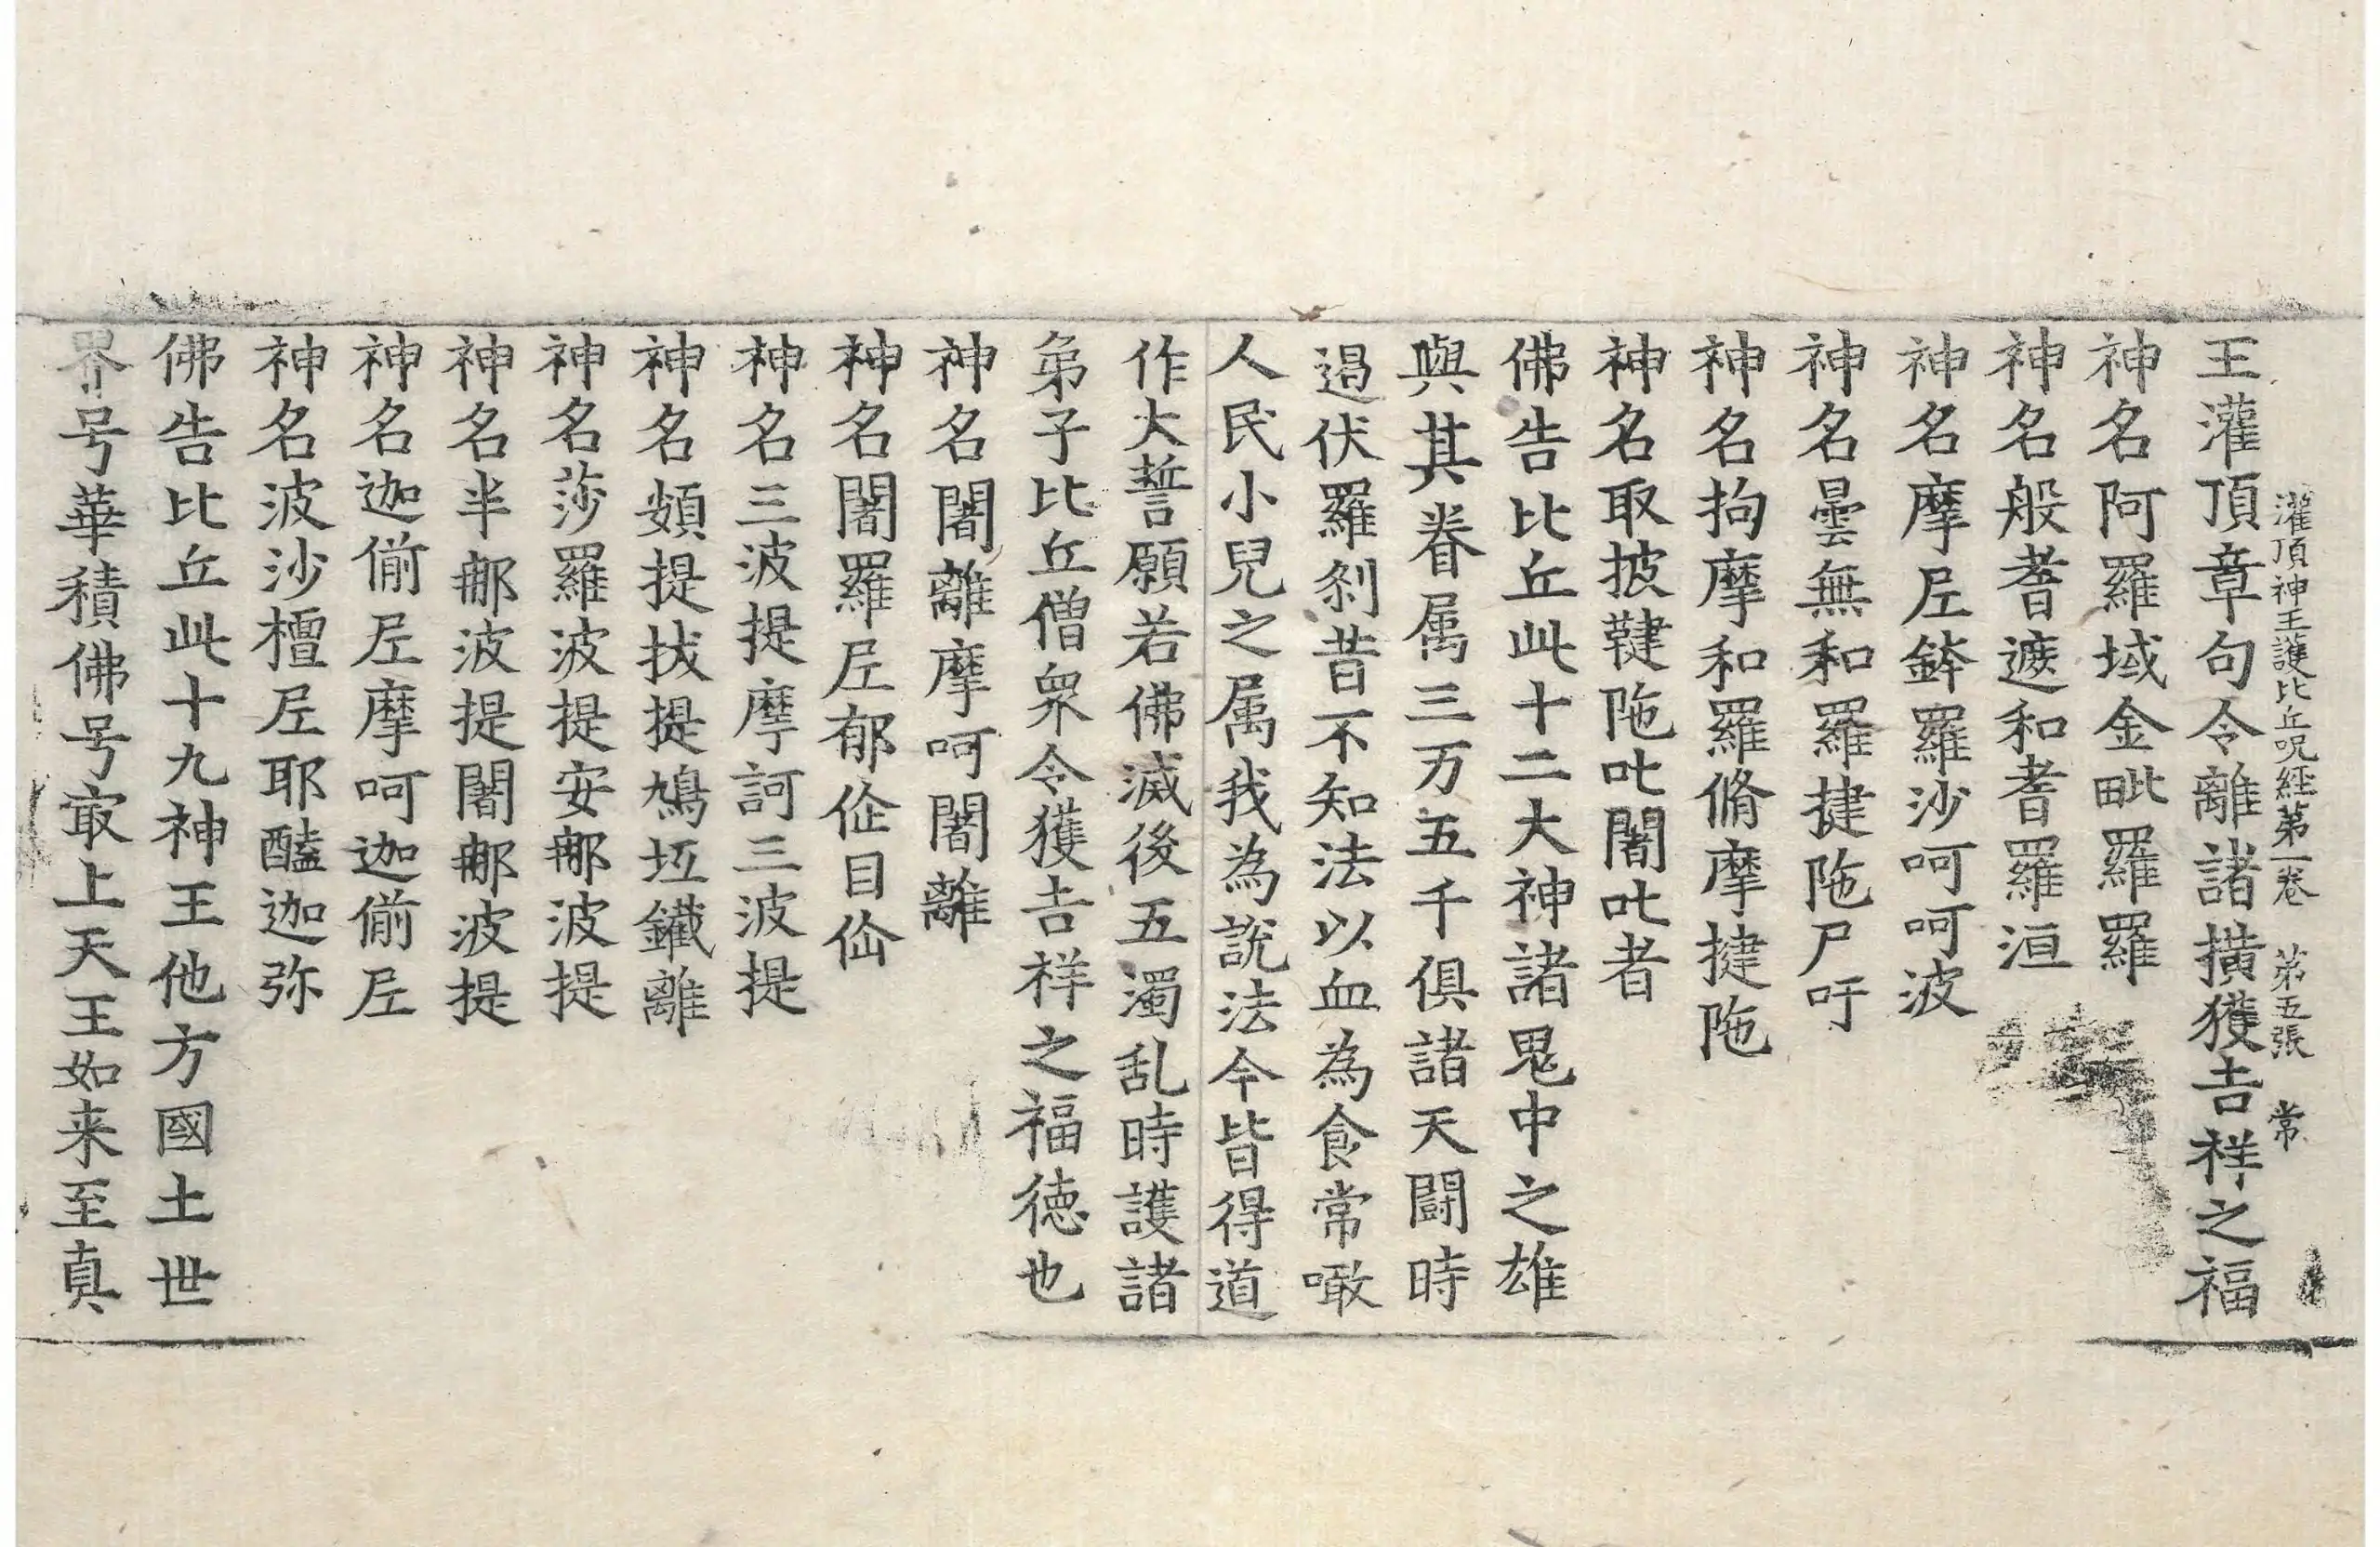 灌頂神王護比丘呪經第一卷 第五張 常
王灌頂章句令離諸擴獲吉祥之福
神名阿羅域金毗羅羅
神名般耆遮和耆羅洹
神名摩𡰱鉢羅沙呵呵波
神名曇無和羅揵陁尸吁
神名拘摩和羅脩摩揵陁
神名取披鞬陁吐闍吐者
佛告比丘此十二大神諸鬼中之雄
與其眷属三万五千俱諸天闘時
過伏羅剎昔不知法以血為食常噉
人民小兒之属我為說法今皆得道
作大誓願若佛滅後五濁乱時護諸
弟子比丘僧衆令獲吉祥之福德也
神名闍離摩呵闍離
神名闍羅𡰱郁仚目仚
神名三波提摩訶三波提
神名頞提拔提鳩坘鑯離
神名莎羅波提安𨚗波提
神名半𨚗波提闍𨚗波提
神名迦偂𡰱摩呵迦偂𡰱
神名波沙檀𡰱耶醯迦弥
佛告比丘此十九神王他方國土世
界号華積佛号㝡上天王如来至真